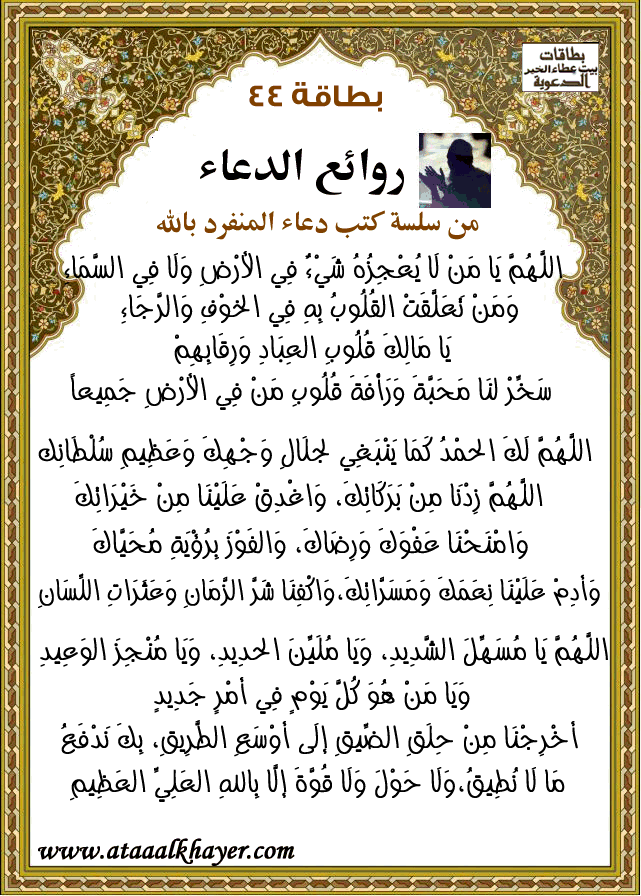 بطاقات
بيت عطاء الخير
الدعوية
بطاقة ٤٤
روائع الدعاء
من سلسة كتب دعاء المنفرد بالله
اللَّهُمَّ يَا مَنْ لَا يُعْجِزُهُ شَيْءٌ فِي الأَرْضِ وَلَا فِي السَّمَاءِ،
وَمَنْ تَعَلَّقَتْ القُلُوبُ بِهِ فِي الخَوْفِ وَالرَّجَاءِ
يَا مَالِكَ قُلُوبِ العِبَادِ وَرِقَابِهِمْ
سَخِّرْ لنَا مَحَبَّةَ وَرَأفَةَ قُلُوبِ مَنْ فِي الأَرْضِ جَمِيعاً
اللَّهُمَّ لَكَ الحَمْدُ كَمَا يَنْبَغِي لِجَلَالِ وَجْهِكَ وَعَظِيمِ سُلْطَانِكَ
اللَّهُمَّ زِدْنَا مِنْ بَرَكَاتِكَ، وَاغْدِقْ عَلَيْنَا مِنْ خَيْرَاتِكَ
وَامْنَحْنَا عَفْوَكَ وَرِضَاكَ، وَالفَوْزَ بِرُؤْيَةِ مُحَيَّاكَ
وَأَدِمْ عَلَيْنَا نِعَمَكَ وَمَسَرَّاتِكَ،وَاكْفِنَا شَرَّ الزَّمَانِ وَعَثَرَاتِ اللِّسَانِ
اللَّهُمَّ يَا مُسَهِّلَ الشَّدِيدِ، وَيَا مُلَيِّنَ الحَدِيدِ، وَيَا مُنْجِزَ الوَعِيدِ
وَيَا مَنْ هُوَ كُلَّ يَوْمٍ فِي أَمْرٍ جَدِيدٍ
أَخْرِجْنَا مِنْ حِلَقِ الضِّيقِ إِلَى أَوْسَعِ الطَّرِيقِ، بِكَ نَدْفَعُ
مَا لَا نُطِيقُ،وَلَا حَوْلَ وَلَا قُوَّةَ إِلَّا بِاللهِ العَلِيِّ العَظِيمِ
www.ataaalkhayer.com